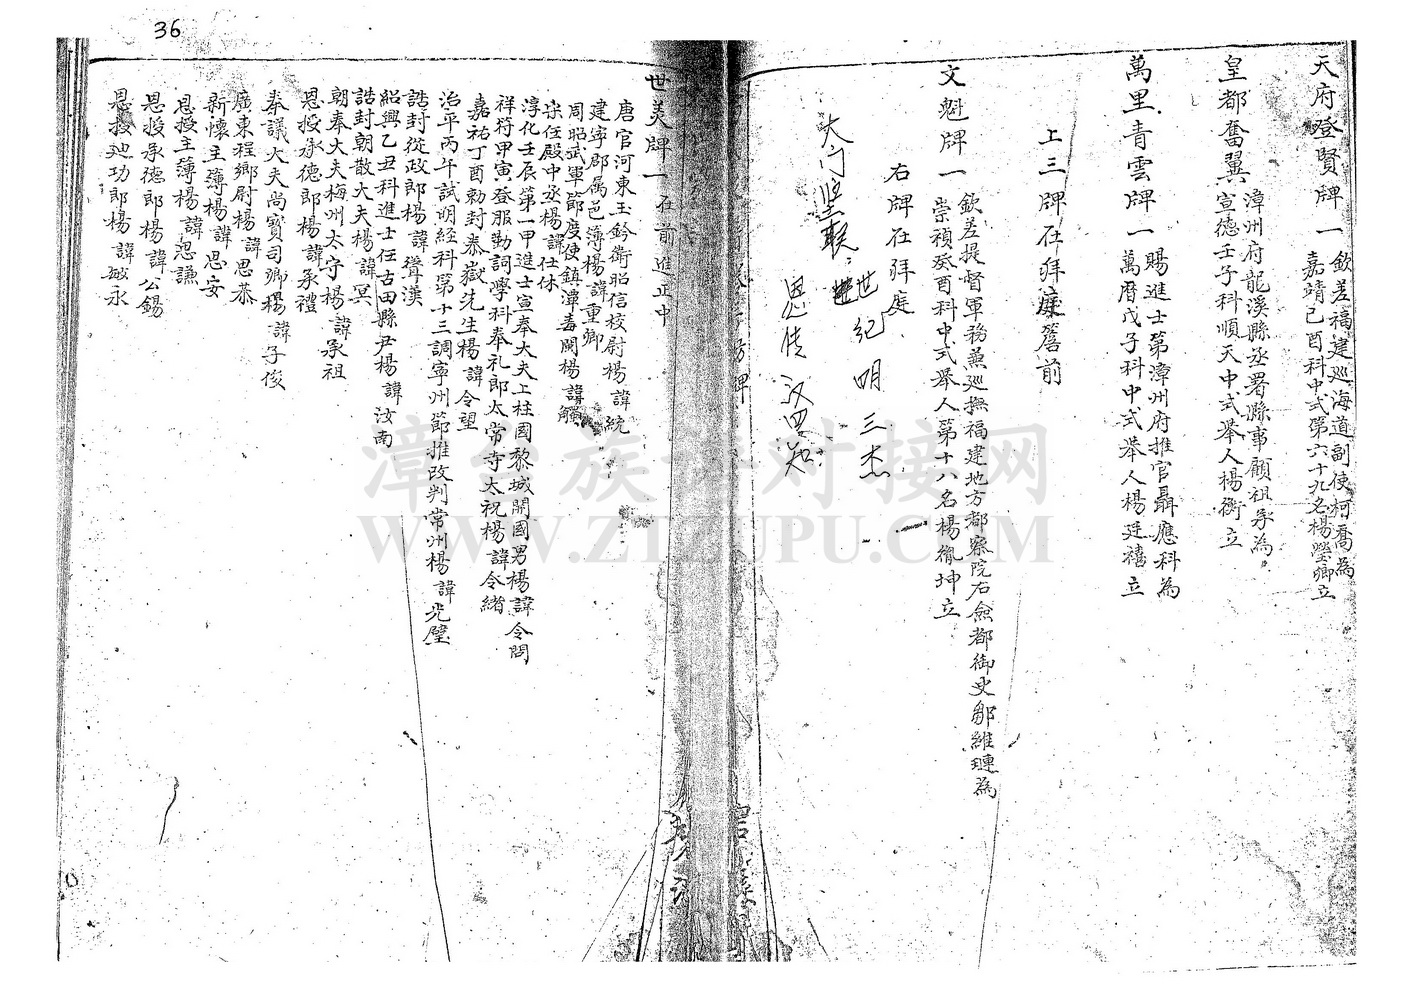 36
天府登賢牌一 欽差福建巡海道副使柯喬為
嘉靖己酉科中式第六十九名楊瑩卿立
皇都奮翼 漳州府龍溪縣丞署縣事顧祖承為
宣德壬子科順天中式舉人楊衡立
萬里青雲牌一 賜進士第漳州府推官聶應科為
萬曆戊子科中式舉人楊廷禧立
上三牌在拜庭簷前
文魁牌一 欽差提督軍務兼巡撫福建地方都察院右僉都御史鄒維璉為
崇禎癸酉科中式舉人第十八名楊胤坤立
右牌在拜庭
大門坚联：世纪明三杰
恩传汉四知
世美牌一在前進正中
唐官河東王鈐衛昭信校尉楊諱統
建寧郡属邑薄楊諱重卿
周昭武軍節度使鎮漳毒関楊諱觸
宋任殿中丞楊諱仕休
淳化壬辰第一甲進士宣奉大夫上柱國黎城開國男楊諱令問
祥符甲寅登服勤詞學科奉礼郎太常寺太祝楊諱令緒
嘉祐丁酉勅封泰嶽先生楊諱令望
治平丙午試明経科第十三調寧州節推改判常州楊諱光璧
誥封從政郎楊諱聳漢
紹興乙丑科進士任古田縣尹楊諱汝南
誥封朝散大夫楊諱冥
朝奉大夫梅州太守楊諱承祖
恩授承德郎楊諱承禮
奉議大夫尚寳司卿楊諱子俊
廣東程鄉尉楊諱思恭
新懷主薄楊諱思安
恩授主薄楊諱思謙
恩授承德郎楊諱公錫
恩授廸功郎楊諱敏永
漳台族谱对接网
WWW.ZTZUPU.COM